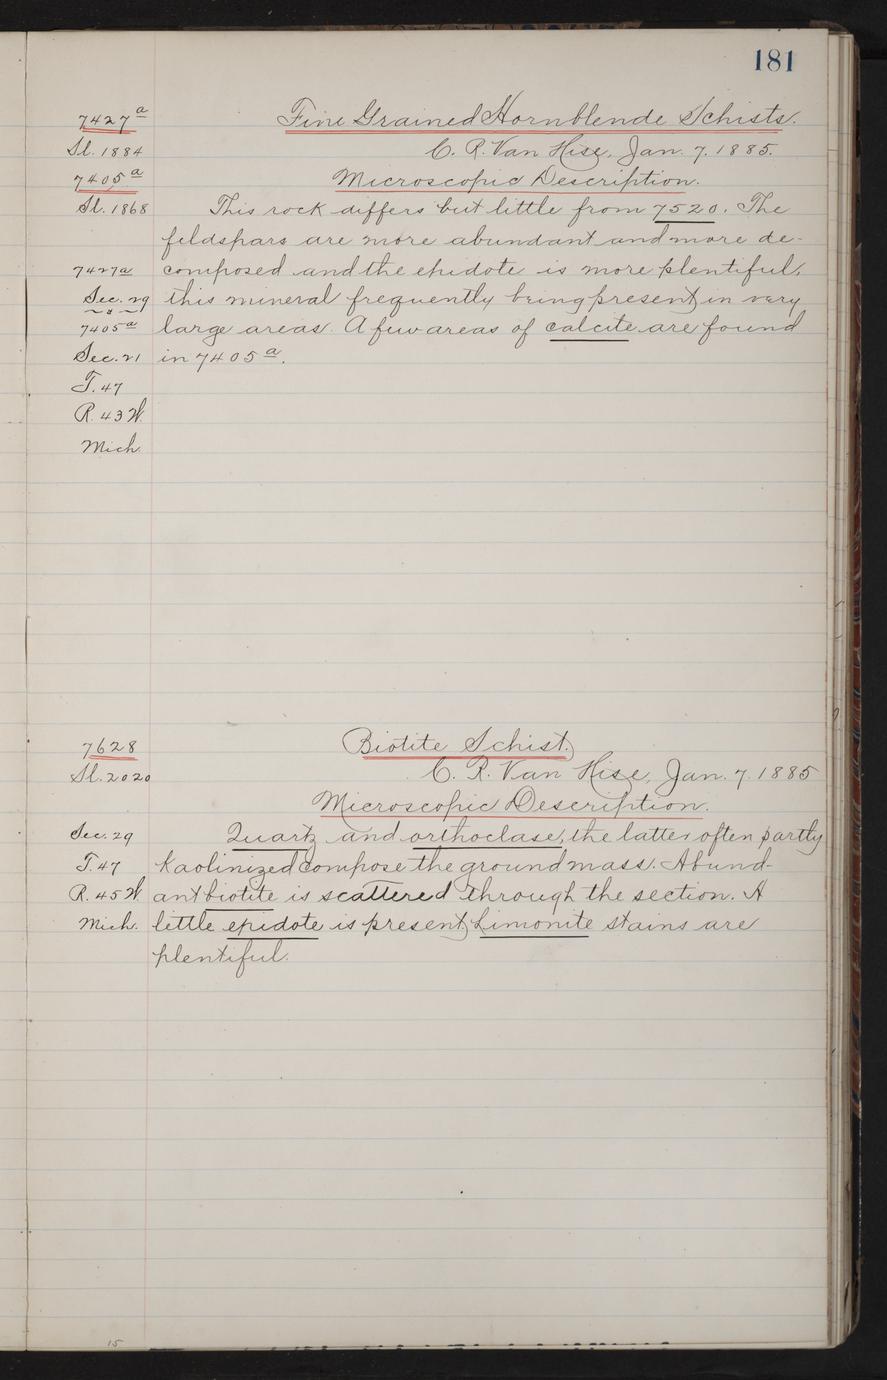 181
7427a Fine Grained Hornblende Schists.
Sl. 1884 C. R. Van Hise, Jan. 7. 1885.
7405a Microscopic Description.
Sl. 1868 This rock differs but little from 7520. The
feldspars are more abundant and more de-
7427a composed and the epidote is more plentiful,
Sec. 29 this mineral frequently being present in very
7405a large areas. A few areas of calcite are found
Sec. 21 in 7405a.
T. 47
R. 43 W.
Mich.
7628 Biotite Schist.
Sl. 2020 C. R. Van Hise, Jan. 7. 1885
Microscopic Description.
Sec. 29 Quartz and orthoclase, the latter often partly
T. 47 Kaolinized compose the groundmass. Abund-
R. 45 W. ant biotite is scattered through the section. A
Mich. little epidote is present, Limonite stains are
plentiful.
15